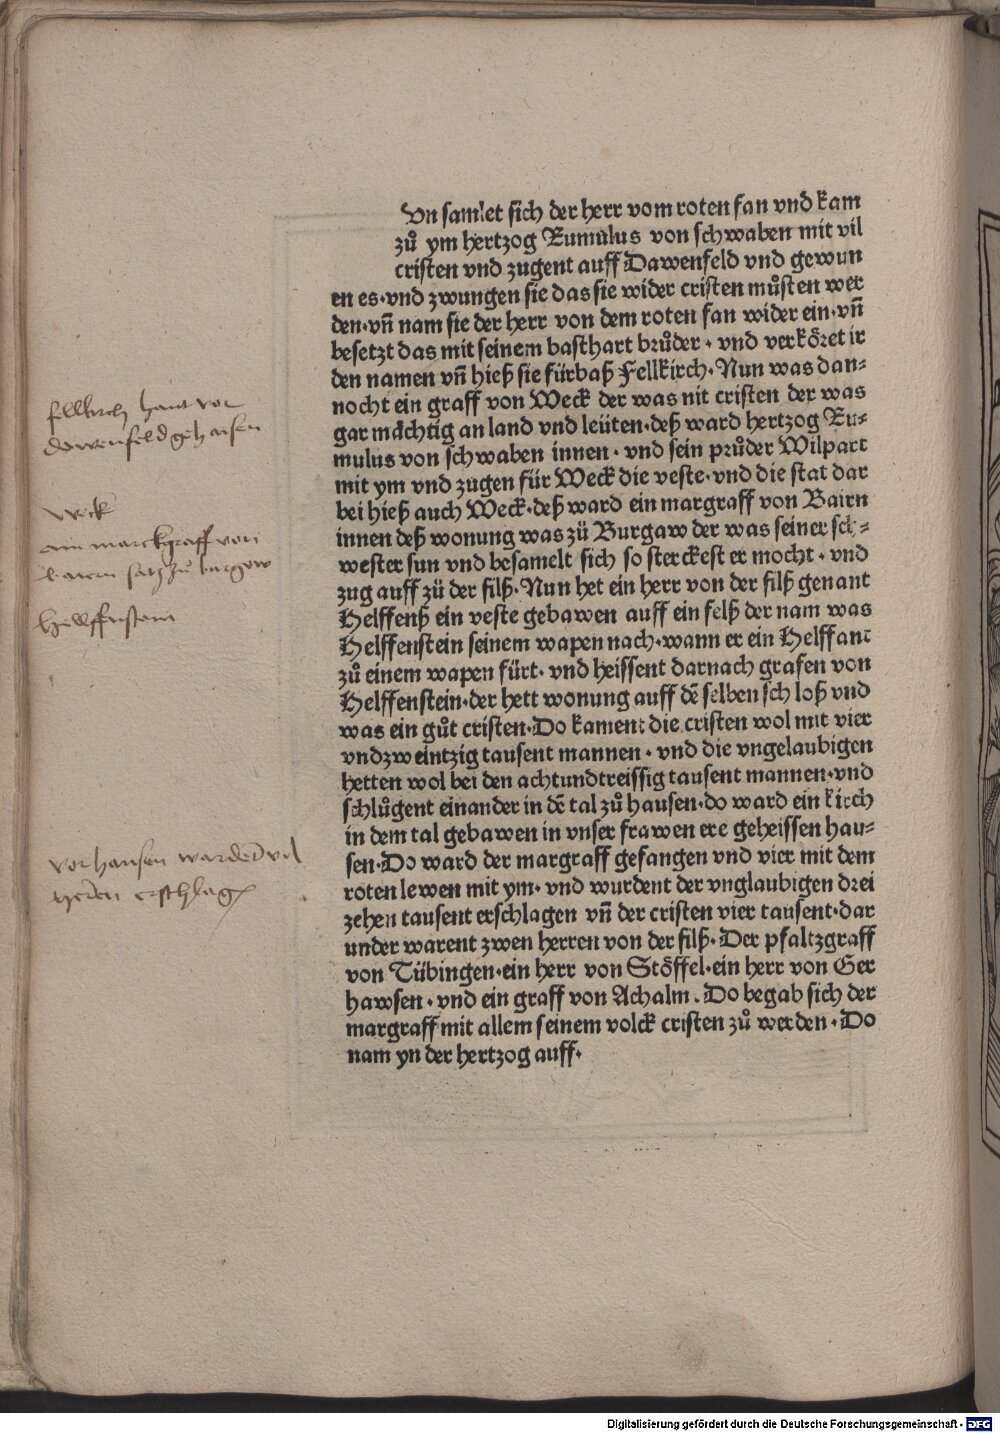 Vn samlet sich der herr vom roten fan vnd kam
zů ym hertzog Rumulus von schwaben mit vil
cristen vnd zugent auff Dawenfeld vnd gewun
en es·vnd zwungen sie das sie wider cristen můsten wer
den·vñ nam sie der herr von dem roten fan wider ein·vñ
besetzt das mit seinem basthart brůder·vnd verköret ir
den namen vñ hieß sie fürbaß Fellkirch·Nun was dan-
nocht ein graff von Weck der was nit cristen der was
gar mächtig an land vnd leüten·deß ward hertzog Ru-
mulus von schwaben innen·vnd sein průder Wilpart
mit ym vnd zugen für Weck die veste·vnd die stat dar
bei hieß auch Weck·deß ward ein margraff von Bairn
innen deß wonung was zů Burgaw der was seiner sch-
wester sun vnd besamelt sich so sterckest er mocht·vnd
zug auff zů der filß·Nun het ein herr von der filß genant
Helffenß ein veste gebawen auff ein felß der nam was
Helffenstein seinem wapen nach·wann er ein Helffant
zů einem wapen fürt·vnd heissent darnach grafen von
Helffenstein·der hett wonung auff dē selben schloß vnd
was ein gůt cristen·Do kament die cristen wol mit vier
vndzweintzig tausent mannen·vnd die vngelaubigen
hetten wol bei den achtundtreissig tausent mannen·vnd
schlůgent einander in dē tal zů hausen·do ward ein kirch
in dem tal gebawen in vnser frawen ere geheissen hau-
sen·Do ward der margraff gefangen vnd vier mit dem
roten lewen mit ym·vnd wurdent der vnglaubigen drei
zehen tausent erschlagen vñ der cristen vier tausent·dar
under warent zwen herren von der filß·Der pfaltzgraff
von Tübingen·ein herr von Stöffel·ein herr von Ger
hawsen·vnd ein graff von Achalm·Do begab sich der
margraff mit allem seinem volck cristen zů werden·Do
nam yn der hertzog auff·
fellkirch hant vor
dawenfeld gehaisen
Weck
ain marckgraff von
bairn satz zu burgow
hellffenstain
vor hausen warden vil
heren erschlagen
Digitalisierung gefördert durch die Deutsche Forschungsgemeinschaft - DFG